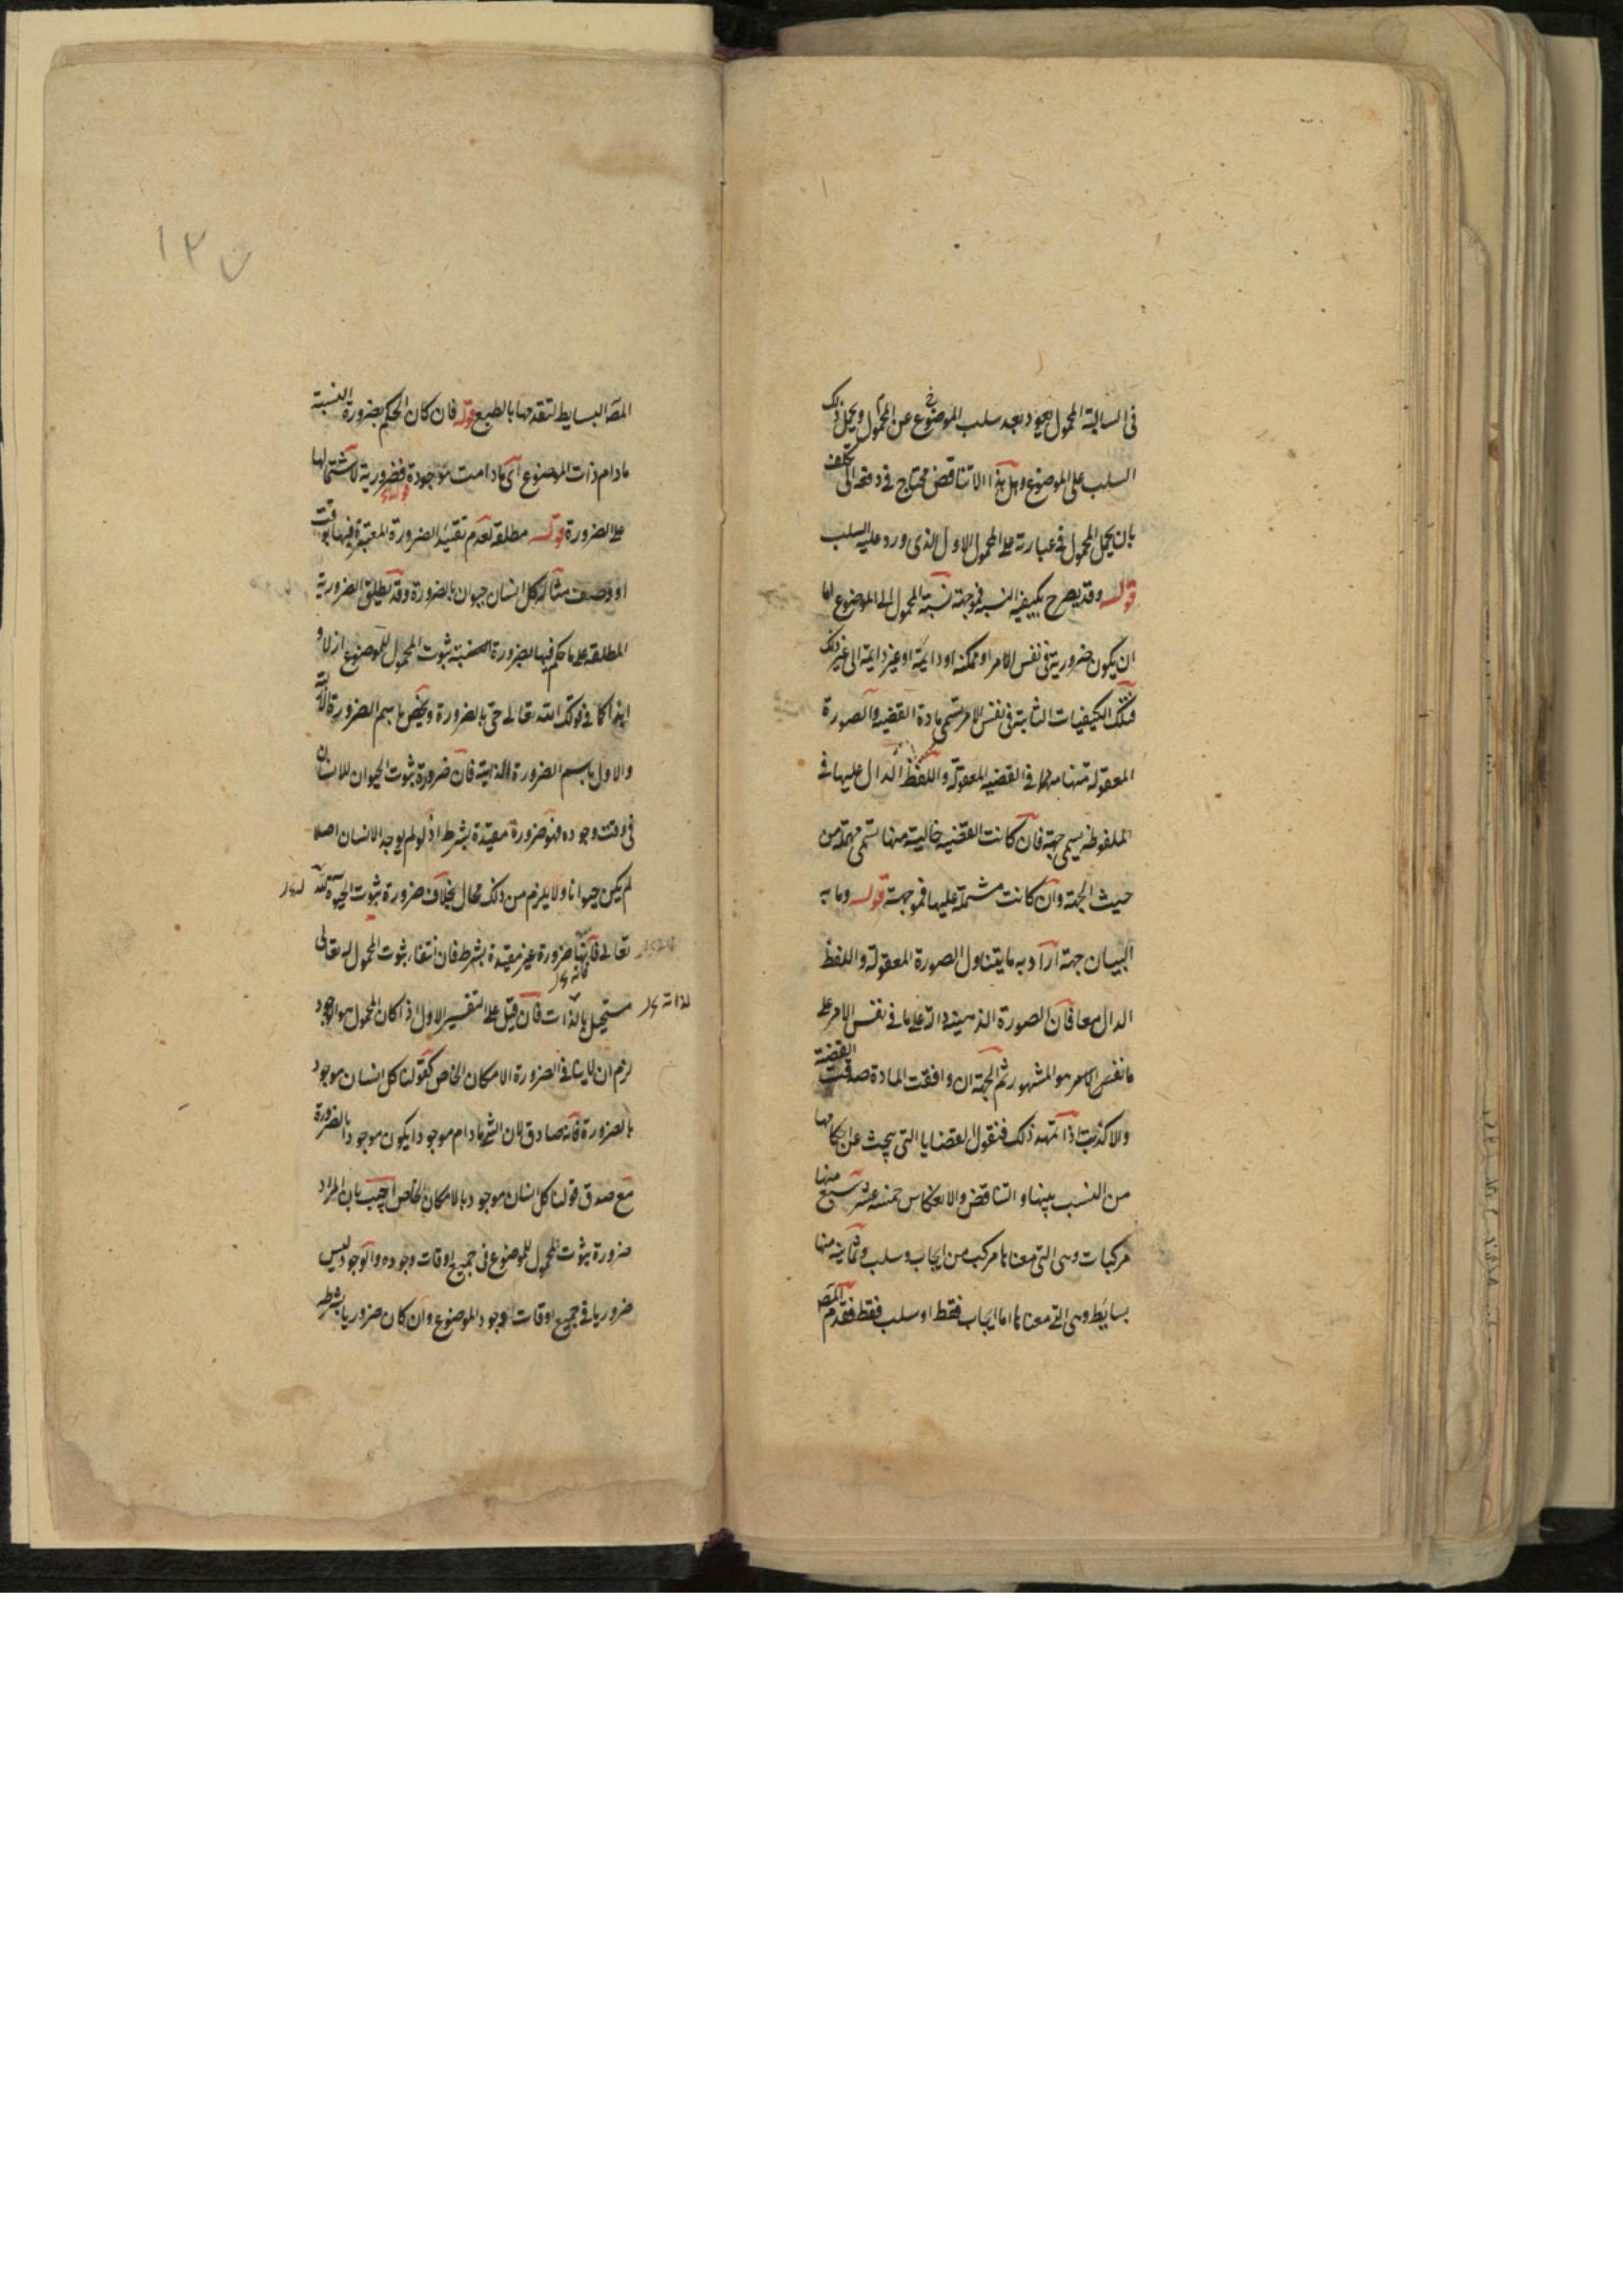 فى السالبة المحمول يعود بعد سلب الموضوع عن المحمول ويحمل ذلك
السلب على الموضوع وهل هذا الا تناقض محتاج فى دفعه الى تكلف
بان يحمل المحمول فى عبارته على المحمول الاول الذى ورد عليه السلب
قوله وقد يصرح بكيفية النسبة فموجهة نسبة المحمول الى الموضوع اما
ان يكون ضرورية فى نفس الامر او ممكنة او دايمة او غير دايمة الى غير ذلك
فتلك الكيفيات الثابتة فى نفس الامر تسمى مادة القضيه والصورة
المعقولة منها فى القضيه المعقولة واللفظ الدال عليها فى
الملفوظه يسمى جهة فان كانت القضيه خالية منها تسمى مهملة من
حيث الجهة وان كانت مشتملة عليها فموجهة قوله وما به
البيان جهة اراد به ما يتناول الصورة المعقولة واللفظ
الدال معا فان الصورة الذهنية دالة على ما فى نفس الامر على
ما نفس الامر هو المشهور ثم الجهة ان وافقت المادة صدقت القضية
والا كذبت اذا تمهد ذلك فنقول القضايا التى يبحث عن احكامها
من النسب بينها والتناقض والانعكاس خمسة عشر سبع منها
مركبات وهى التى معناها مركب من ايجاب وسلب وثمانية منها
بسايط وهى التى معناها اما ايجاب فقط او سلب فقط فقدم المص
١٢٥
المص البسايط لتقدمها بالطبع قوله فان كان الحكم بضرورة النسبة
مادام ذات الموضوع اى مادامت موجودة فضرورية لاشتمالها
على الضرورة قوله مطلقة لعدم تقييد الضرورة المعتبرة فيها بوقت
او وصف مثاله كل انسان حيوان بالضرورة وقد يطلق الضرورية
المطلقه على ما حكم فيها بضرورة ثبوت المحمول للموضوع ازلا و
ابدا كما فى قولك الله تعالى حى بالضرورة ويخص باسم الضرورة الازلية
والاول باسم الضرورة الذاتية فان ضرورة ثبوت الحيوان للانسان
فى وقت وجوده فهو ضرورة مقيدة بشرط اذ لو لم يوجد الانسان اصلا
لم يكن حيوانا ولا يلزم من ذلك محال بخلاف ضرورة ثبوت الحيوة لله
تعالى فانها ضرورة غير مقيدة بشرط فان انتفاء ثبوت المحمول له تعالى
مستحيل بالذات فان قيل على التفسير الاول اذا كان المحمول هو الوجود
لزم ان لا ينافى الضرورة الامكان الخاص كقولنا كل انسان موجود
بالضرورة فانه صادق لان الشى مادام موجودا يكون موجودا بالضرورة
مع صدق قولنا كل انسان موجود بالامكان الخاص اجيب بان المراد
ضرورة ثبوت المحمول للموضوع فى جميع اوقات وجوده والوجود ليس
ضروريا فى جميع اوقات وجود الموضوع وان كان ضروريا بشرط